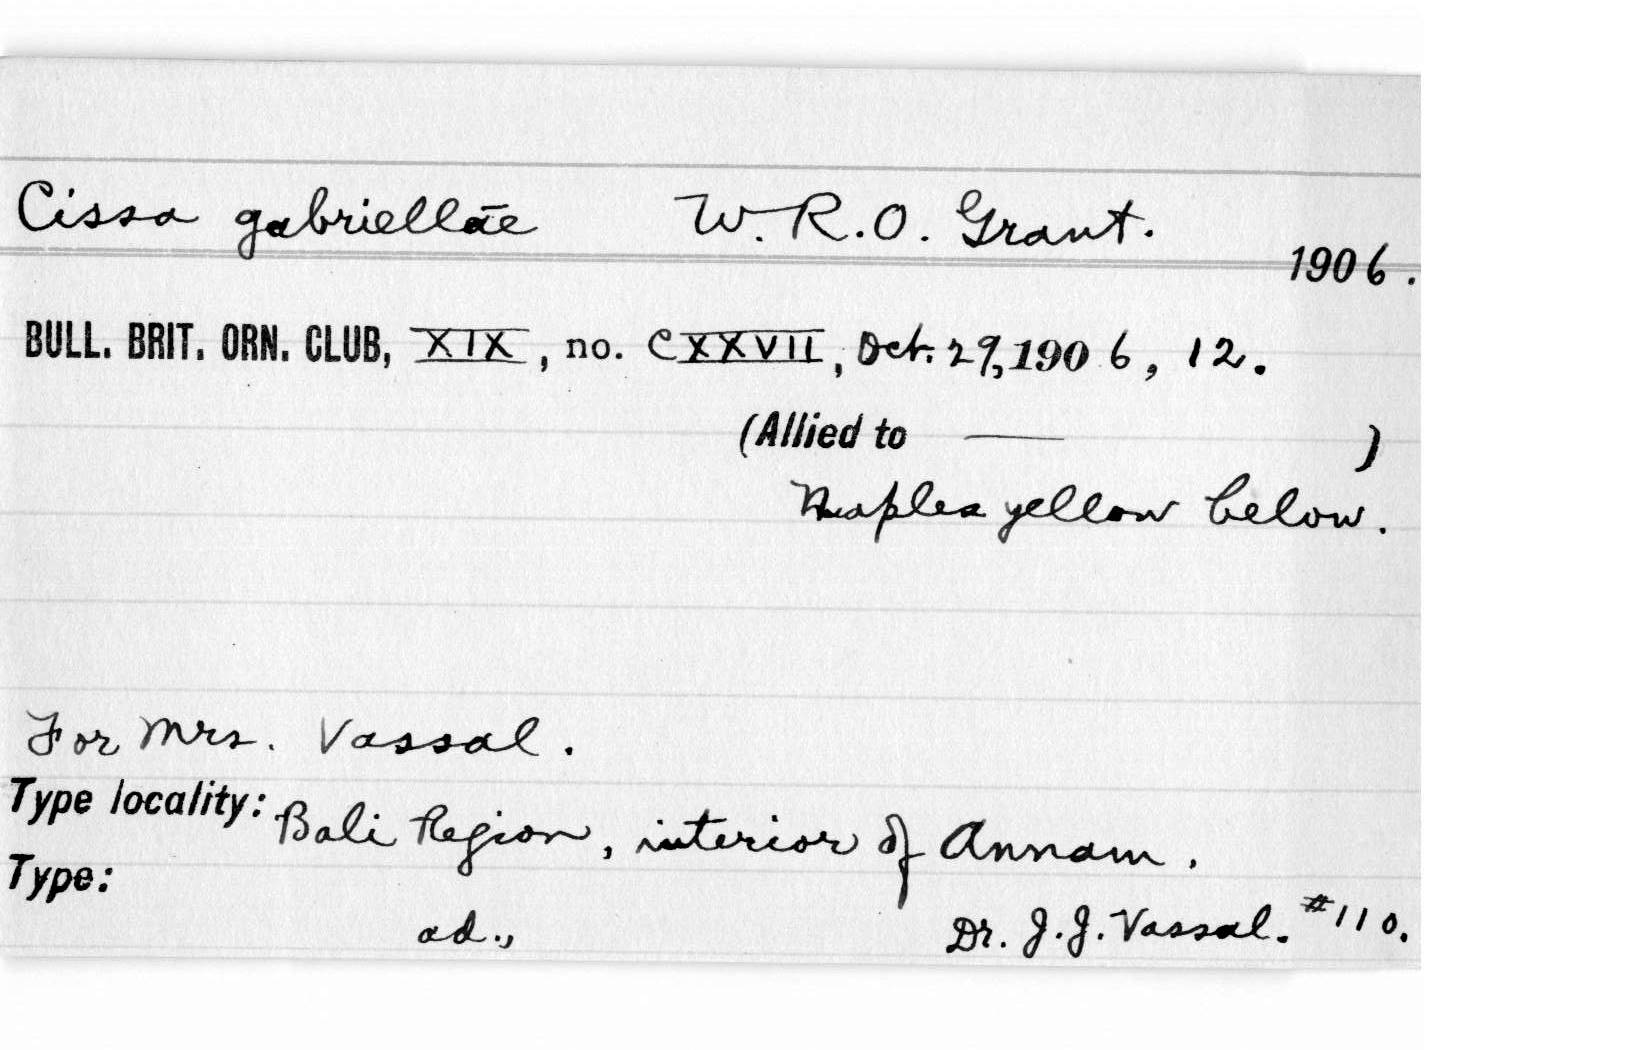 Cissa gabriellae W. R. O. Grant.
1906.
BULL. BRIT. ORN. CLUB, XIX, no. CXXVII, Oct. 29, 1906, 12.
(Allied to — )
Naples yellow below.
For Mrs. Vassal.
Type locality: Bali Region, interior of Annam.
Type:
ad., Dr. J. J. Vassal. #110.